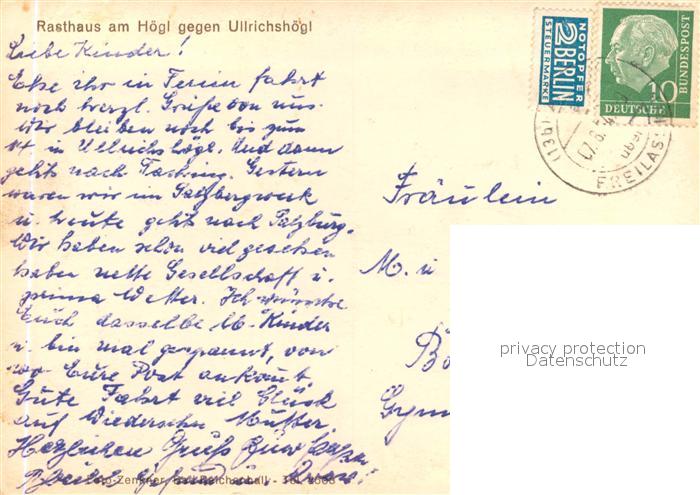 Rasthaus am Högl gegen Ullrichshögl
Liebe Kinder!
Ehe ihr in Ferien fahrt
noch herzl. Grüße von uns.
Wir bleiben noch bis zum
14 in Ullrichshögl. Und dann
gehts nach Tacking. Gestern
waren wir im Salzbergwerk
u. heute gehts nach Salzburg.
Wir haben schon viel gesehen
haben nette Gesellschaft u.
prima Wetter. Ich wünsche
Euch dasselbe lb. Kinder
u. bin mal gespannt, von
wo Eure Post ankomt.
Gute Fahrt viel Glück
auf Wiedersehn Mutter.
Herzlichen Gruß
Zenkner, Bad Reichenhall - Tel.
NOTOPFER
2 BERLIN
STEUERMARKE
DEUTSCHE
BUNDESPOST
10
FREILASS
über
Fräulein
M. u
Bö
Gym
privacy protection
Datenschutz